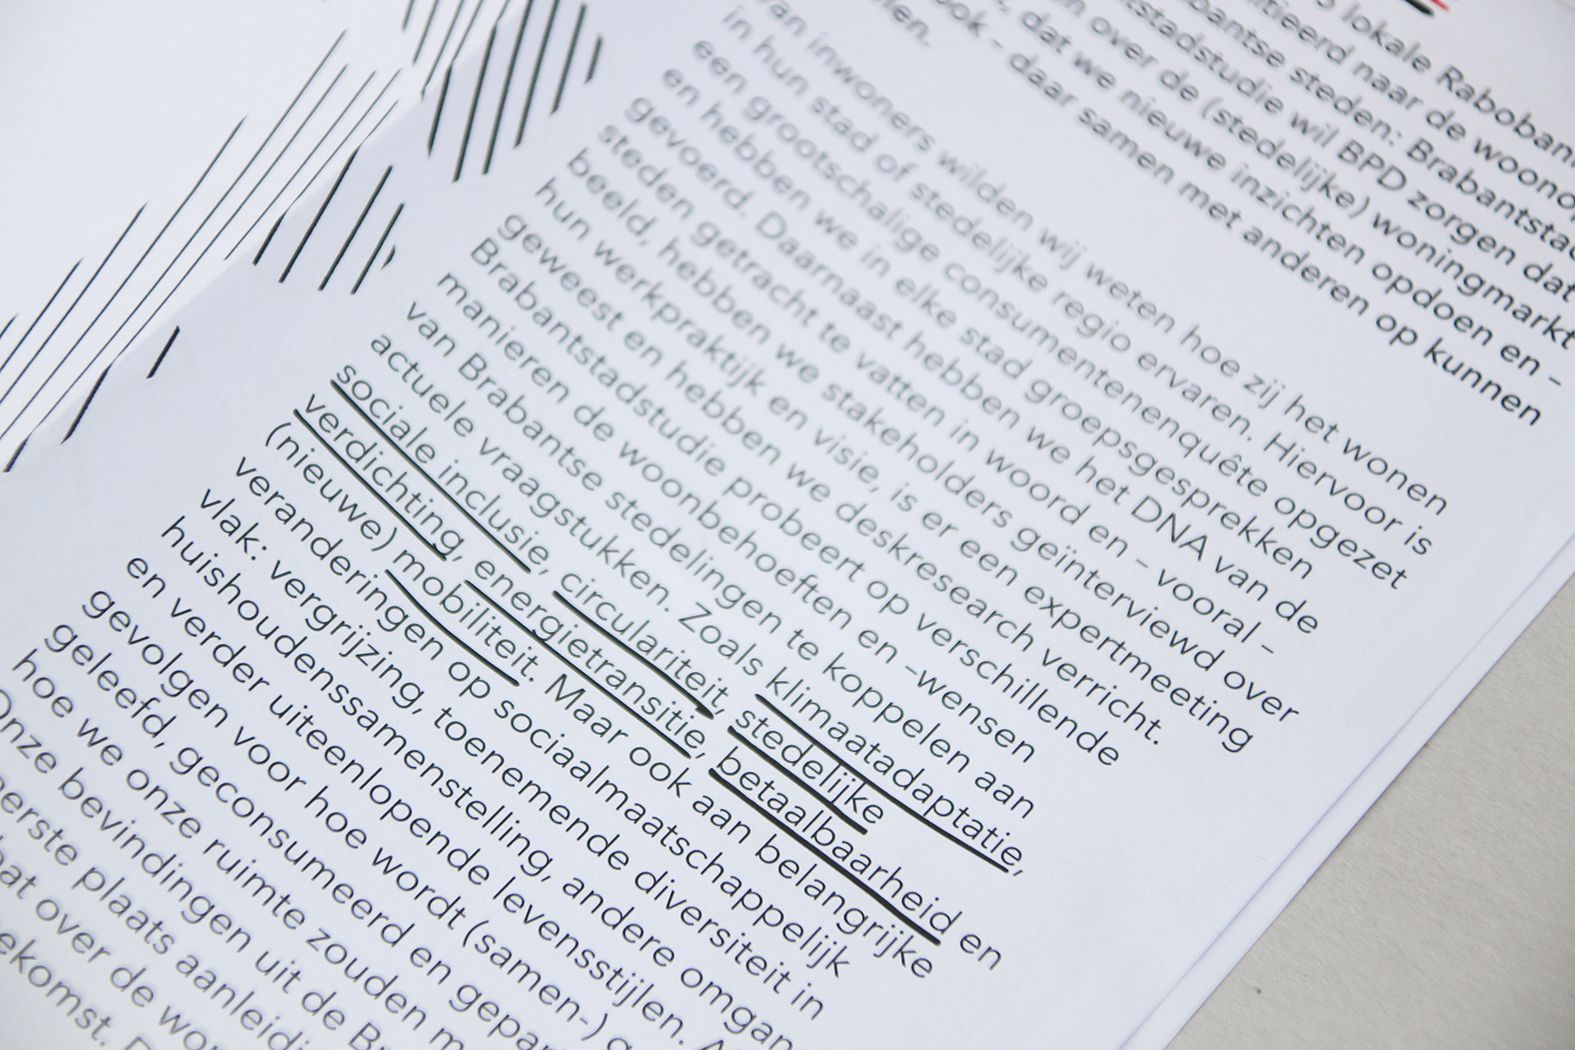 lokale Raboban
itieerd naar de woono
bantse steden: Brabantsta
ntstadstudie wil BPD zorgen dat
over de (stedelijke) woningmarkt
, dat we nieuwe inzichten opdoen en –
ook - daar samen met anderen op kunnen
len.
van inwoners wilden wij weten hoe zij het wonen
in hun stad of stedelijke regio ervaren. Hiervoor is
een grootschalige consumentenenquête opgezet
en hebben we in elke stad groepsgesprekken
gevoerd. Daarnaast hebben we het DNA van de
steden getracht te vatten in woord en – vooral –
beeld, hebben we stakeholders geïnterviewd over
hun werkpraktijk en visie, is er een expertmeeting
geweest en hebben we deskresearch verricht.
Brabantstadstudie probeert op verschillende
manieren de woonbehoeften en –wensen
van Brabantse stedelingen te koppelen aan
actuele vraagstukken. Zoals klimaatadaptatie,
sociale inclusie, circulariteit, stedelijke
verdichting, energietransitie, betaalbaarheid en
(nieuwe) mobiliteit. Maar ook aan belangrijke
veranderingen op sociaalmaatschappelijk
vlak: vergrijzing, toenemende diversiteit in
huishoudenssamenstelling, andere omgan
en verder uiteenlopende levensstijlen. A
gevolgen voor hoe wordt (samen-) g
geleefd, geconsumeerd en gepar
hoe we onze ruimte zouden m
Onze bevindingen uit de Br
eerste plaats aanleidi
at over de wo
ekomst. D